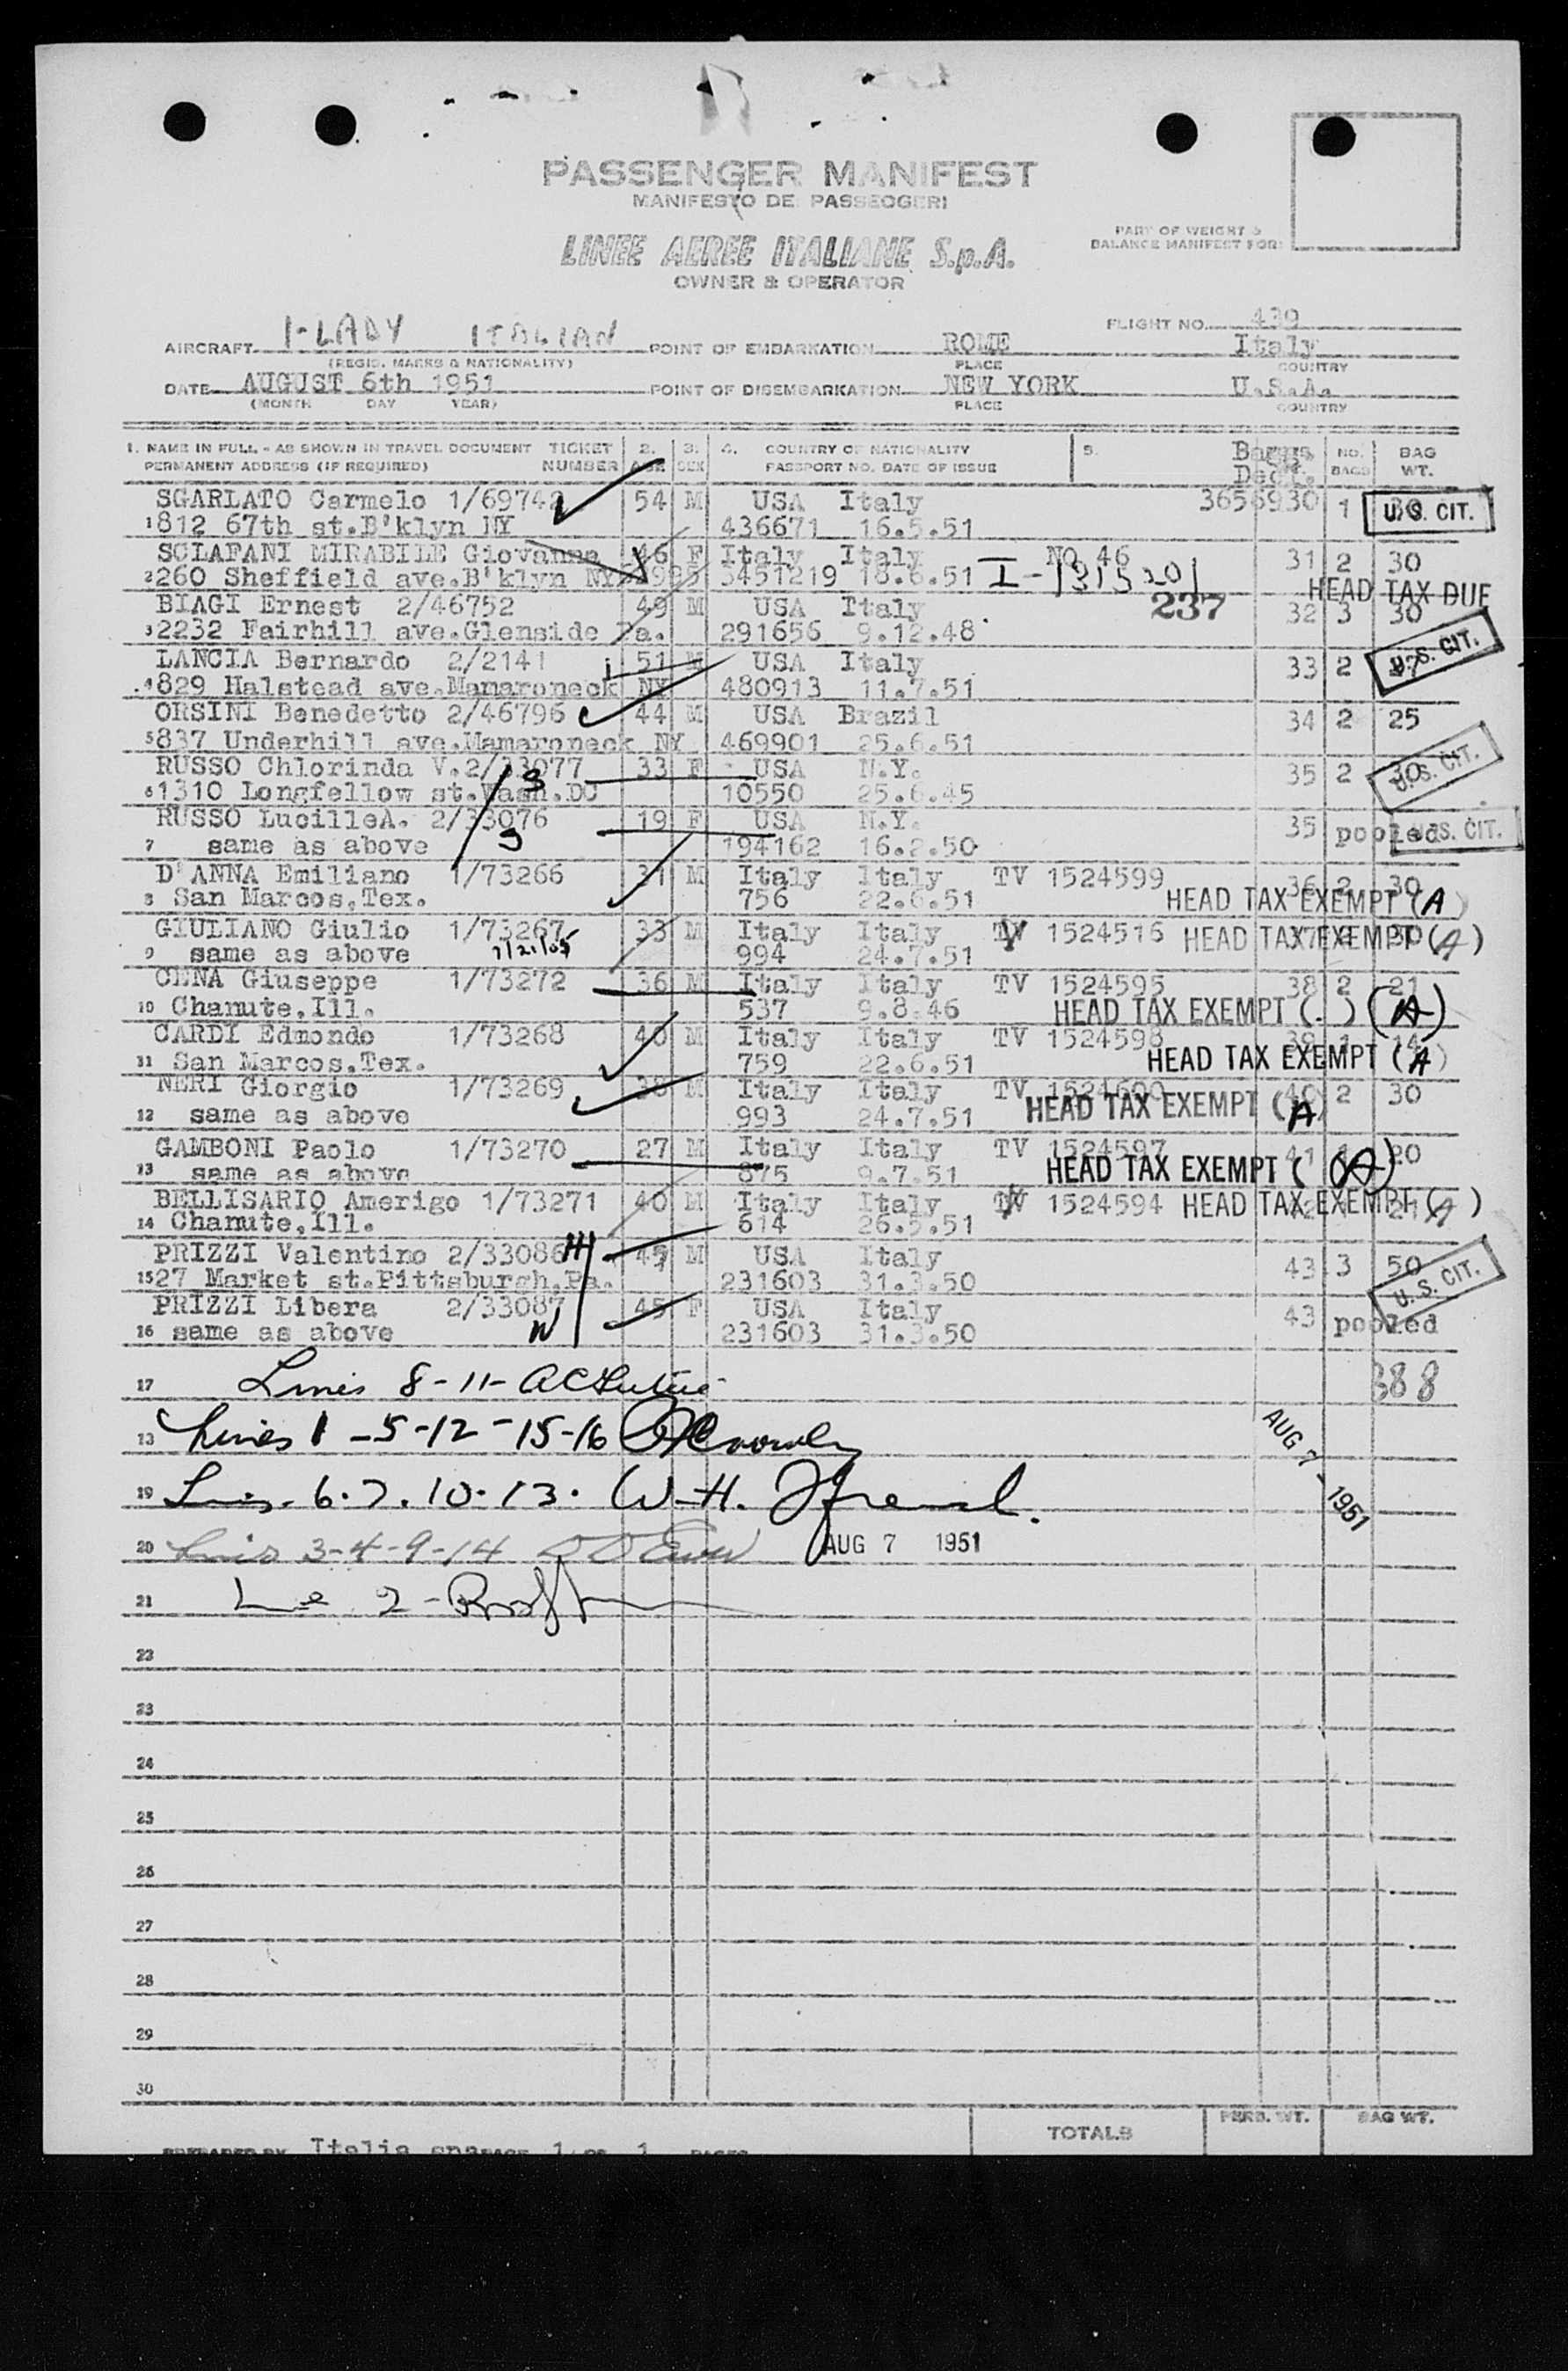 PASSENGER MANIFEST
MANIFESTO DE PASSEGGERI
LINEE AEREE ITALIANE S.p.A.
OWNER & OPERATOR
PART OF WEIGHT &
BALANCE MANIFEST FOR:
FLIGHT NO. 439
AIRCRAFT I-LADY ITALIAN POINT OF EMBARKATION ROME Italy
(REGIS. MARKS & NATIONALITY) PLACE COUNTRY
DATE AUGUST 6th 1951 POINT OF DISEMBARKATION NEW YORK U.S.A.
(MONTH DAY YEAR) PLACE COUNTRY
1. NAME IN FULL - AS SHOWN IN TRAVEL DOCUMENT TICKET 2. 3. 4. COUNTRY OF NATIONALITY 5. NO. BAG
PERMANENT ADDRESS (IF REQUIRED) NUMBER AGE SEX PASSPORT NO. DATE OF ISSUE BAGS WT.
SGARLATO Carmelo 1/69742 54 M USA Italy 3656930 1 U.S. CIT.
1 812 67th st.B'klyn NY 436671 16.5.51
SCLAFANI MIRABILE Giovanna 46 F Italy Italy NQ 46 31 2 30
2 260 Sheffield ave.B'klyn NY 3451219 18.6.51 HEAD TAX DUE
BIAGI Ernest 2/46752 49 M USA Italy 237 32 3 30
3 2232 Fairhill ave.Glenside Pa. 291656 9.12.48 U.S. CIT.
LANCIA Bernardo 2/2141 51 M USA Italy 33 2
4 829 Halstead ave.Mamaroneck NY 480913 11.7.51
ORSINI Benedetto 2/46796 44 M USA Brazil 34 2 25
5 837 Underhill ave.Mamaroneck NY 469901 25.6.51
RUSSO Chlorinda V.2/33077 33 F USA N.Y. 35 2 30 U.S. CIT.
6 1310 Longfellow st.Wash.DC 10550 25.6.45
RUSSO LucilleA. 2/33076 19 F USA N.Y. 35 pooled U.S. CIT.
7 same as above 194162 16.2.50
D'ANNA Emiliano 1/73266 31 M Italy Italy TV 1524599 36 2 30
8 San Marcos,Tex. 756 22.6.51 HEAD TAX EXEMPT (A)
GIULIANO Giulio 1/73267 33 M Italy Italy TV 1524516 HEAD TAX EXEMPT (A)
9 same as above 994 24.7.51
CENA Giuseppe 1/73272 36 M Italy Italy TV 1524595 38 2 21
10 Chanute,Ill. 537 9.8.46 HEAD TAX EXEMPT ( ) (A)
CARDI Edmondo 1/73268 40 M Italy Italy TV 1524598 39 1 14
11 San Marcos,Tex. 759 22.6.51 HEAD TAX EXEMPT (A)
NERI Giorgio 1/73269 38 M Italy Italy TV 1524600 40 2 30
12 same as above 993 24.7.51 HEAD TAX EXEMPT (A)
GAMBONI Paolo 1/73270 27 M Italy Italy TV 1524597 41 1 20
13 same as above 875 9.7.51 HEAD TAX EXEMPT (A)
BELLISARIO Amerigo 1/73271 40 M Italy Italy TV 1524594 HEAD TAX EXEMPT (A)
14 Chanute,Ill. 614 26.5.51
PRIZZI Valentino 2/33086 45 M USA Italy 43 3 50
15 27 Market st.Pittsburgh,Pa. 231603 31.3.50 U.S. CIT.
PRIZZI Libera 2/33087 45 F USA Italy 43 pooled
16 same as above 231603 31.3.50
17 Lines 8-11- 388
18 Lines 1-5-12-15-16
AUG 7 - 1951
19 Lines 6.7.10.13. W.H.
20 Lines 3-4-9-14 AUG 7 1951
21 Line 2-
22
23
24
25
26
27
28
29
30
TOTALS PERS. WT. BAG WT.
PREPARED BY Italia PAGE 1 OF 1 PAGES